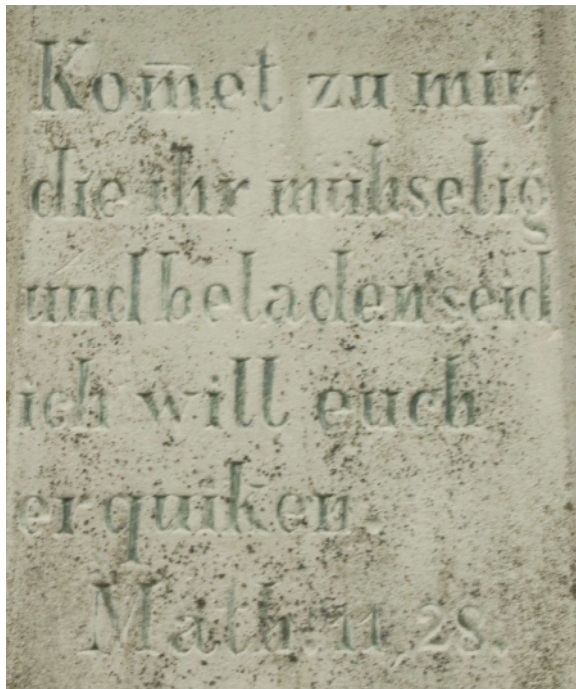 Kom̅et zu mir,
die ihr mühselig
und beladen seid
ich will euch
erquiken.
Math. 11,28.